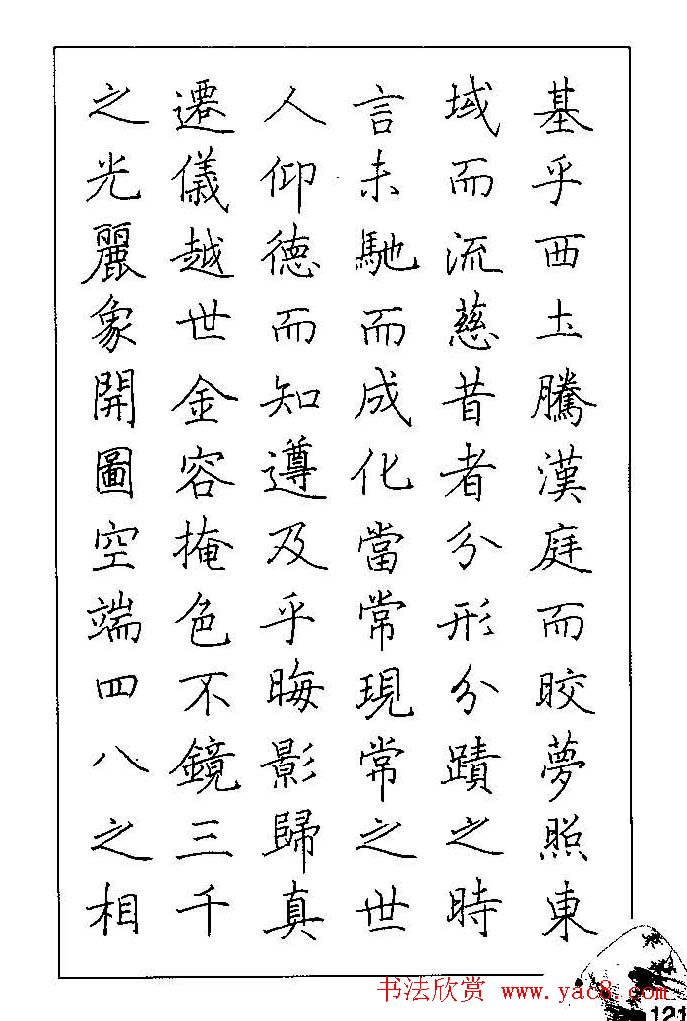 基乎西土騰漢庭而晈夢照東
域而流慈昔者分形分蹟之時
言未馳而成化當常現常之世
人仰德而知遵及乎晦影歸真
遷儀越世金容掩色不鏡三千
之光麗象開圖空端四八之相
书法欣赏 www.yac8.com
121